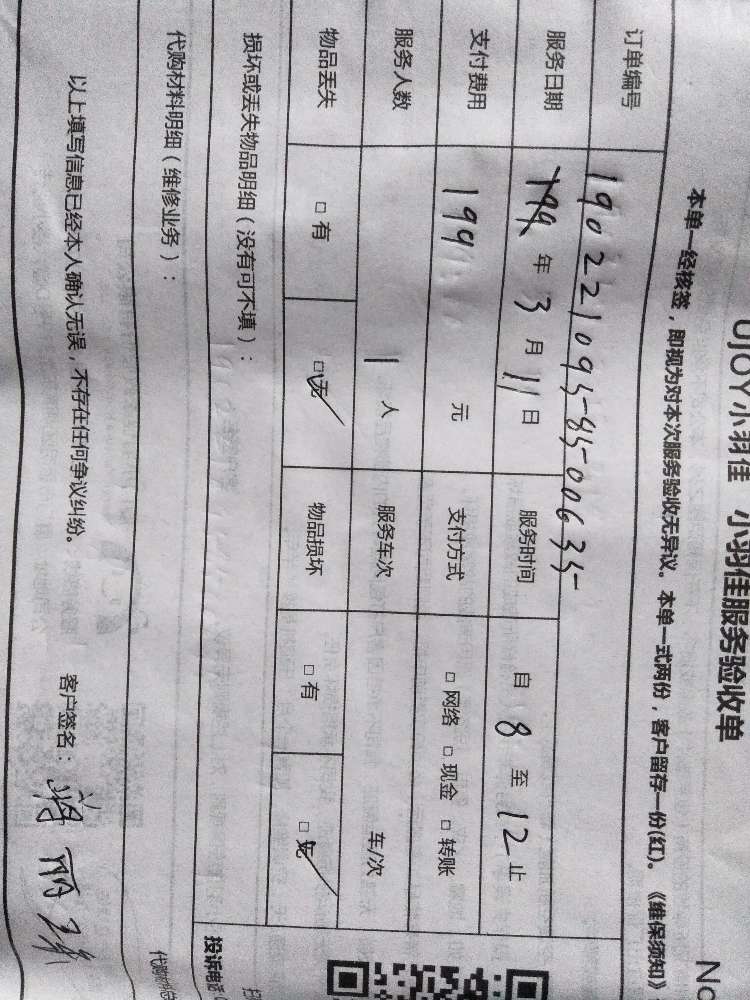 UJOY小羽佳 小羽佳服务验收单
No
本单一经核签，即视为对本次服务验收无异议。本单一式两份，客户留存一份(红)。《维保须知》
订单编号 1902210958500635
服务日期 199 年 3 月 11 日 服务时间 自 8 至 12 止
支付费用 199 元 支付方式 □ 网络 □ 现金 □ 转账
服务人数 1 人 服务车次 车/次
物品丢失 □ 有 □ 无 物品损坏 □ 有 □ 无
损坏或丢失物品明细（没有可不填）：
投诉电话
代购材料明细（维修业务）：
以上填写信息已经本人确认无误，不存在任何争议纠纷。 客户签名：